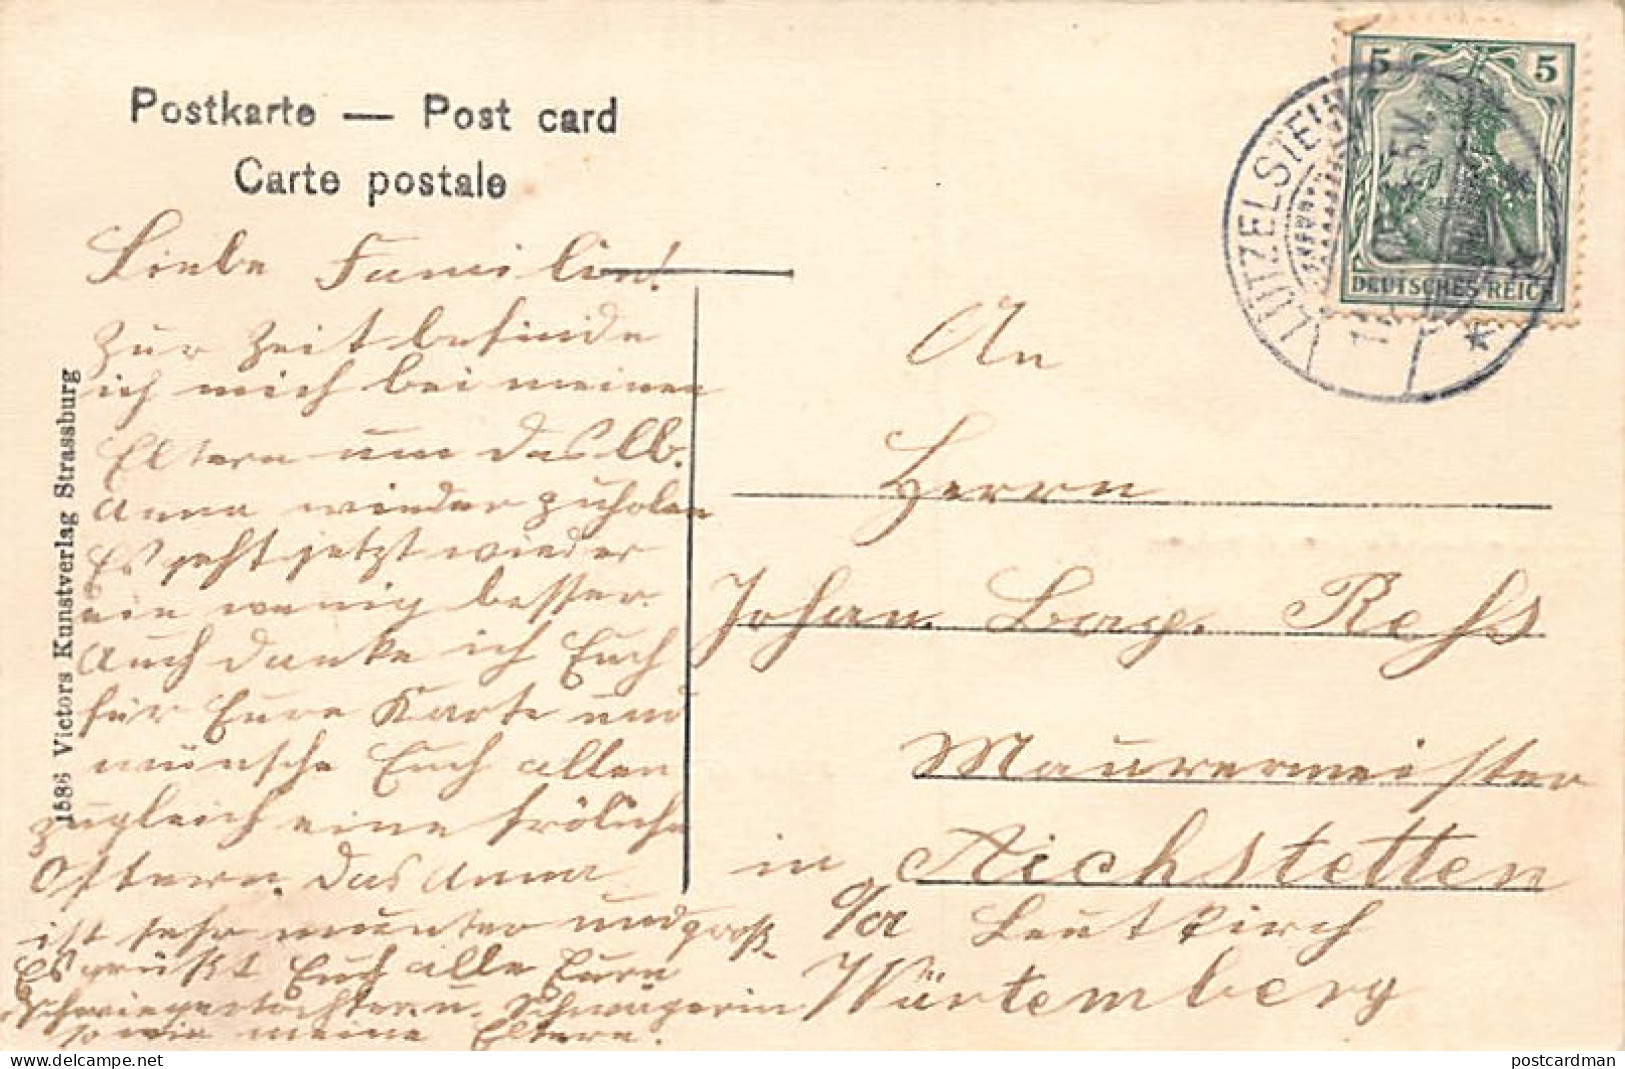 Postkarte — Post card
Carte postale
5 5
DEUTSCHES REICH
LÜTZELSTEIN
5V.
Liebe Familie!
Zur Zeit befinde
ich mich bei meinen
Eltern um das lb.
Anna wieder zuholen
Es geht jetzt wieder
ein wenig besser.
Auch danke ich Euch
für Eure Karte und
wünsche Euch allen
zugleich eine fröhliche
Ostern. Das Anna
ist sehr munter und groß.
Es grüßt Euch alle Eure
Schwiegertochter u. Schwägerin
sowie meine Eltern.
An
Herrn
Johan. Reß
Maurermeister
in Aichstetten
Leutkirch
Würtemberg
1586 Victors Kunstverlag Strassburg
delcampe.net
postcardman